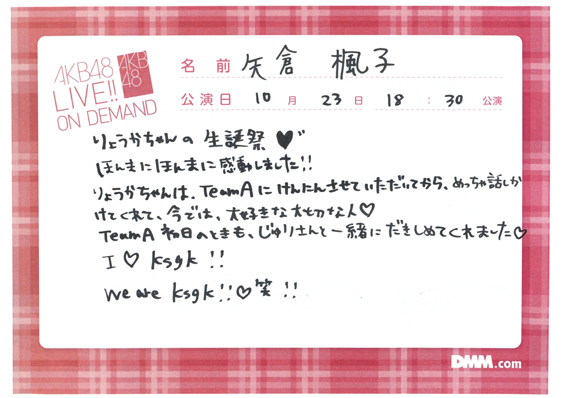 AKB48
LIVE!!
ON DEMAND
AKB
48
名前 矢倉 楓子
公演日 10月 23日 18:30公演
りょうかちゃんの 生誕祭♥
ほんまにほんまに感動しました!!
りょうかちゃんは、TeamAにけんにんさせていただいてから、めっちゃ話しか
けてくれて、今では、大好きな大切な人♡
TeamA 初日のときも、じゅりさんと一緒にだきしめてくれました♡
I ♡ ksgk !!
We are ksgk!!♡笑 !!
DMM.com